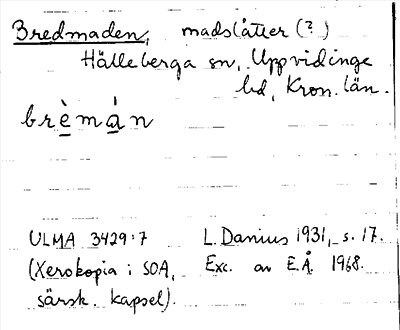 Bredmaden, madslåtter (?)
Hälleberga sn, Uppvidinge
hd, Kron. län.
brèmán
ULMA 3429:7 L. Danius 1931, s. 17.
(Xerokopia i SOA, Exc. av E.Å. 1968.
särsk. kapsel).